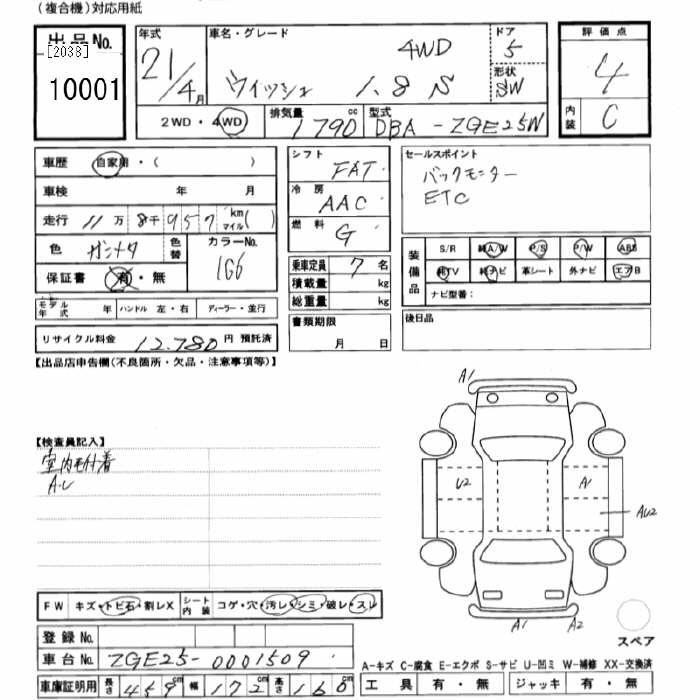 (複合機)対応用紙
出品No.
[2038]
10001
年式 21/4月
車名・グレード
4WD
ウィッシュ 1.8S
ドア 5
形状 SW
評価点 4
内装 C
2WD・4WD
排気量 1790 cc
型式 DBA-ZGE25W
車歴 自家用・( )
車検 年 月
走行 11万8千957km マイル( )
色 ガンメタ
色替
カラーNo. 1G6
保証書 有・無
モデル年式 年 ハンドル 左・右 ディーラー・並行
リサイクル料金 12.780円 預託済
シフト FAT
冷房 AAC
燃料 G
乗車定員 7名
積載量 kg
総重量 kg
書類期限 月 日
セールスポイント
バックモニター
ETC
装備品
S/R 純A/W P/S P/W ABS
純TV 純ナビ 革シート 外ナビ エアB
ナビ型番:
後日品
【出品店申告欄(不良箇所・欠品・注意事項等)】
【検査員記入】
室内毛付着
A.U
A1
U2
A1
AU2
A1
A2
スペア
FW キズ・トビ石・割レX シート内装 コゲ・穴・汚レ・シミ・破レ・スレ
登録No.
車台No. ZGE25-0001509
車庫証明用 長さ 459cm 幅 172cm 高さ 160cm
A-キズ C-腐食 E-エクボ S-サビ U-凹ミ W-補修 XX-交換済
工具 有・無 ジャッキ 有・無